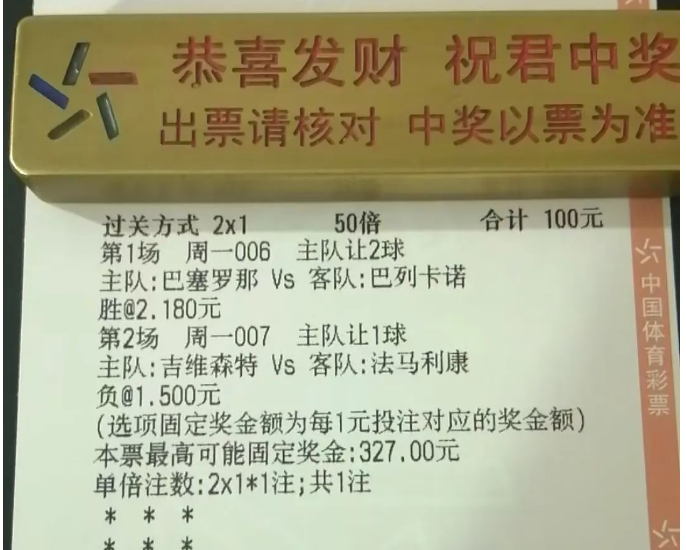 恭喜发财 祝君中奖
出票请核对 中奖以票为准
过关方式 2x1 50倍 合计 100元
第1场 周一006 主队让2球
主队:巴塞罗那 Vs 客队:巴列卡诺
胜@2.180元
第2场 周一007 主队让1球
主队:吉维森特 Vs 客队:法马利康
负@1.500元
(选项固定奖金额为每1元投注对应的奖金额)
本票最高可能固定奖金:327.00元
单倍注数:2x1*1注;共1注
* * *
* * *
中国体育彩票